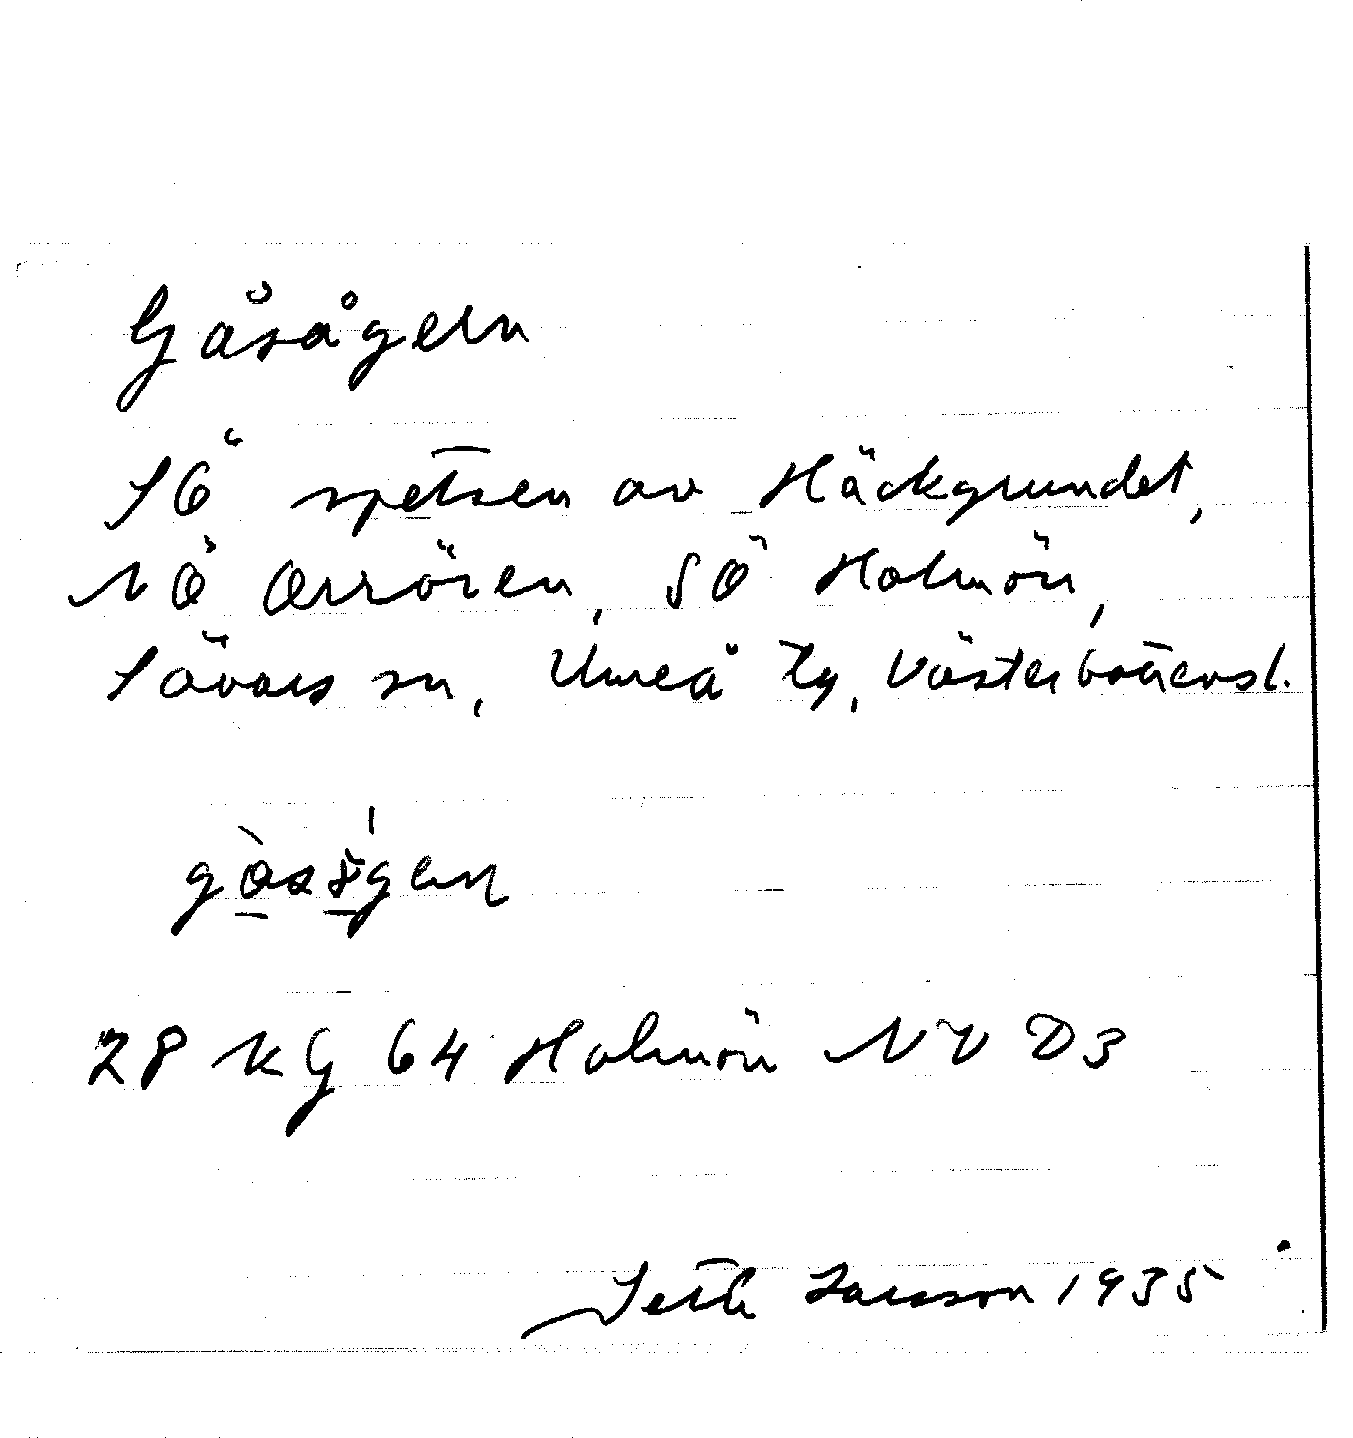 Gåsågern
SÖ spetsen av Häckgrundet,
NÖ Orrören, SÖ Holmön,
Sävars sn, Umeå tg, Västerbottensl.
28 KG 64 Holmön NV D3
Seth Larsson 1935